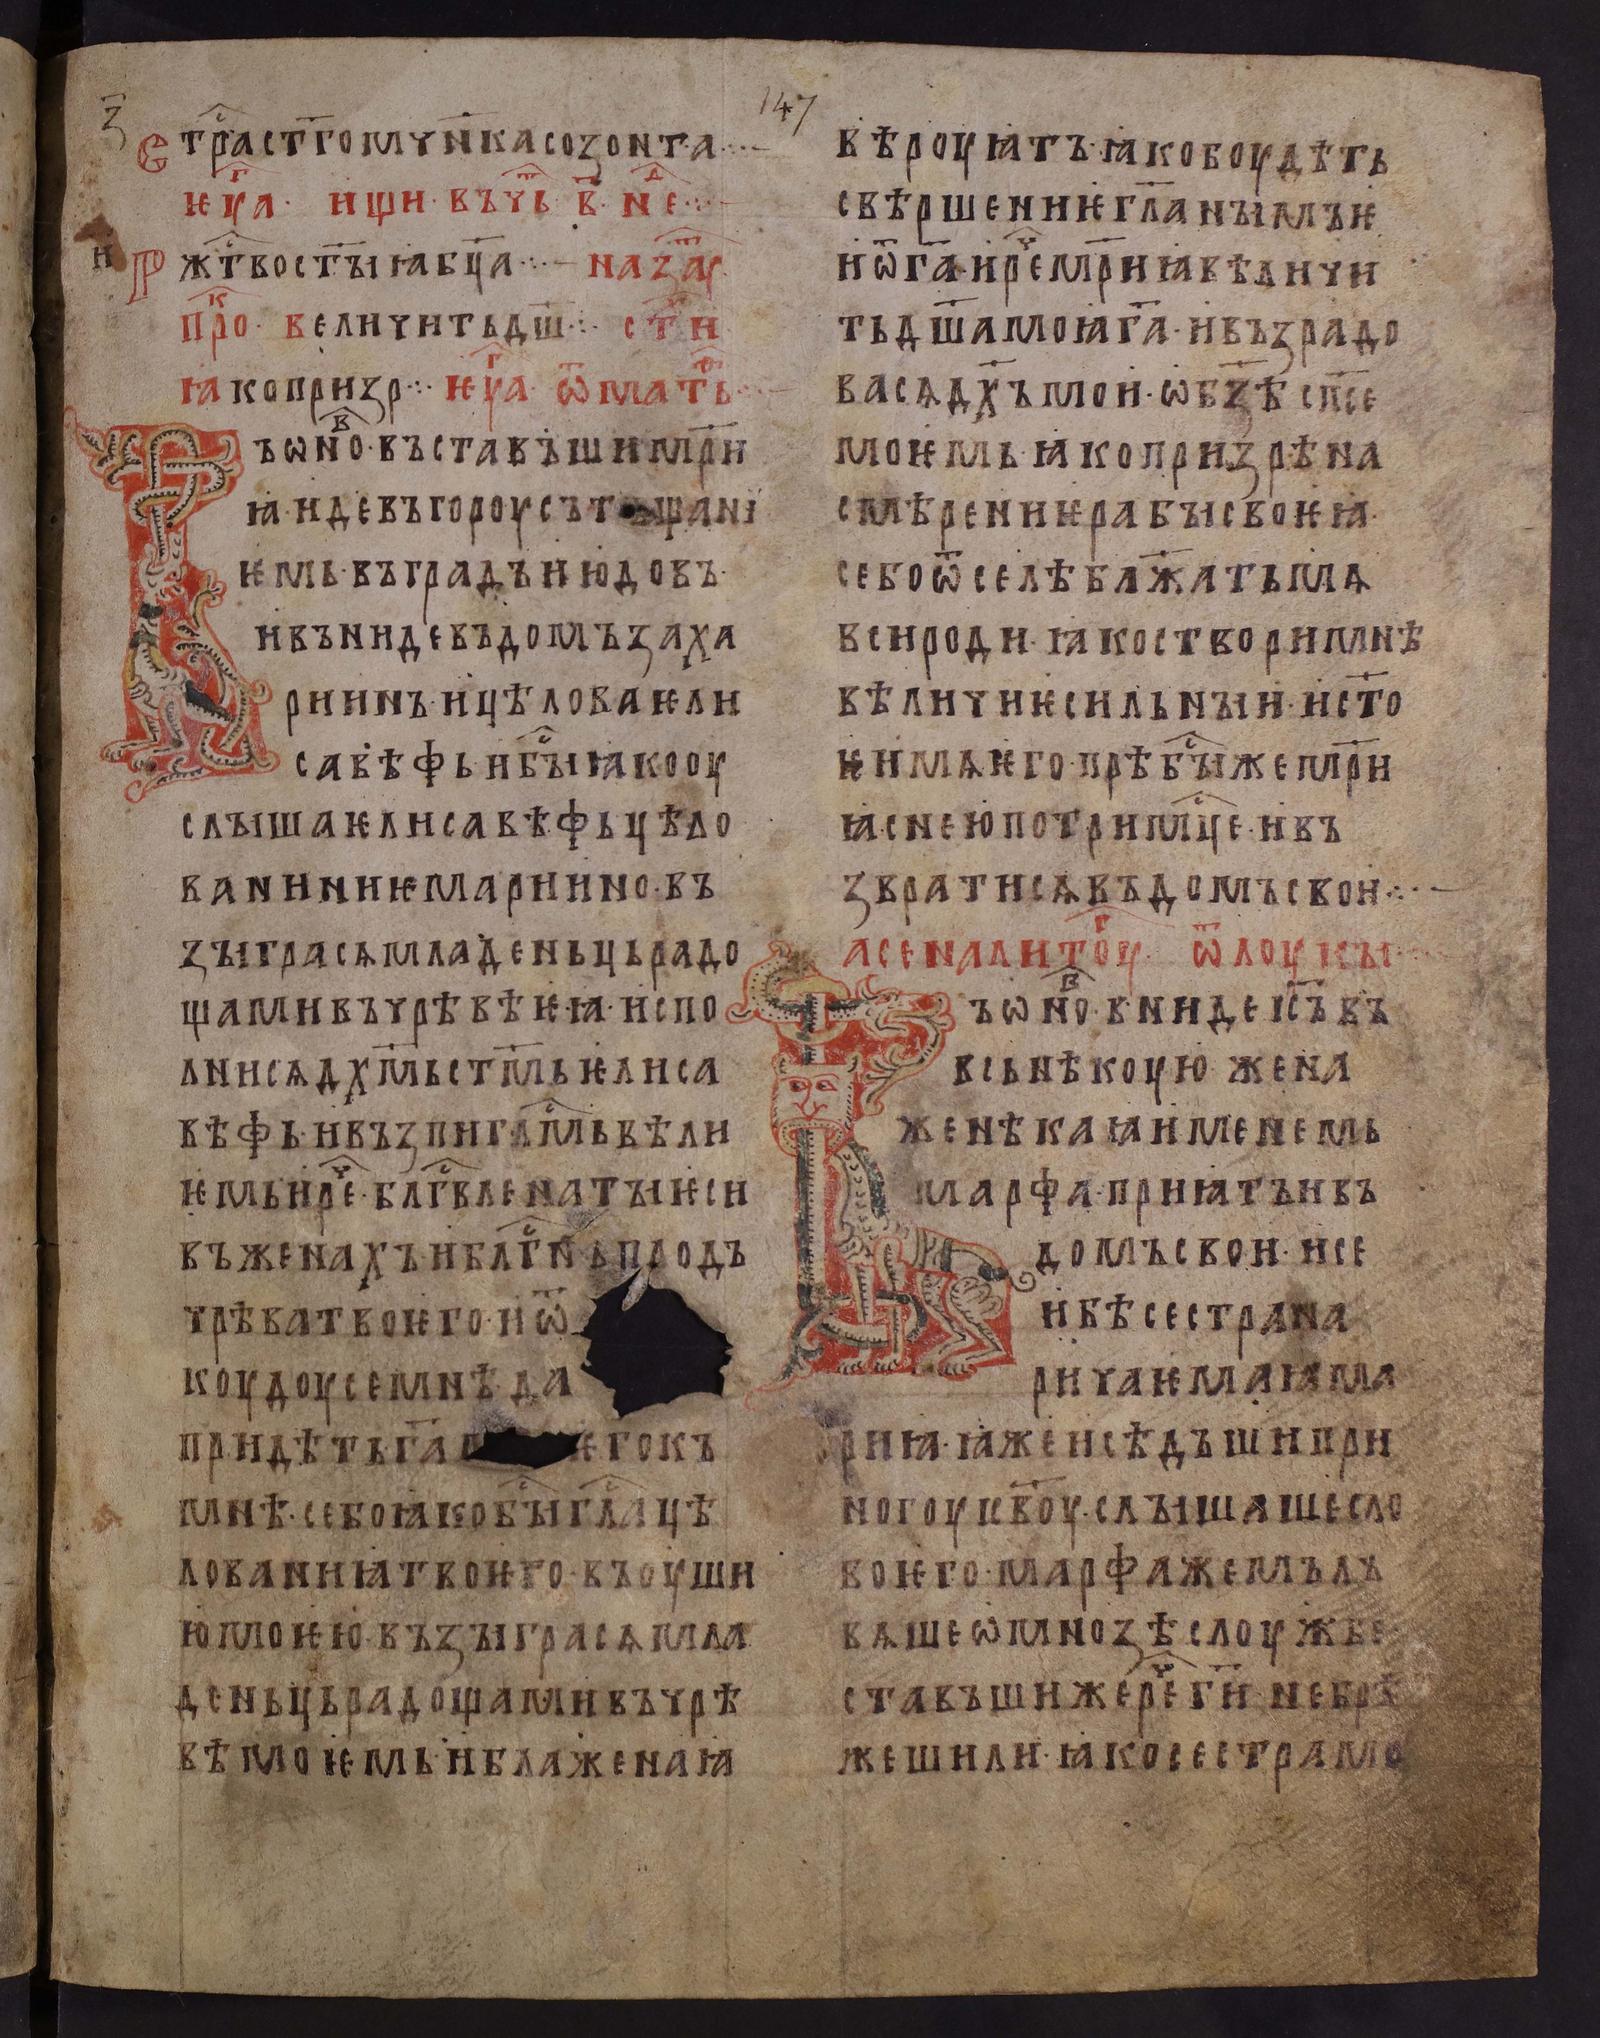 147
з е стра҇ст҃гомч҃нкасозонта
ѥѵ҃га· ищи· въчт҃ь· в҃· нед҃
и р жтⷭ҇вост҃ыꙗбц҃а на заꙋ҃т
прⷪ҇к· величитьдш҃· стⷯ҇и
ꙗкопризр· ѥѵ҃га· ѿматⷴ҇ь
ъѡнⷪ҇·въставъшимр҃и
ꙗ·идевъгороусътъщани
ѥмь·въградъиюдовъ·
ивънидевъдомъзаха
риинъ·ицѣловаѥли
савѣфь·ибыⷭ҇ꙗкооу
слышаѥлисавѣфьцѣло
ванинѥмариино·въ
зыграсѧмладеньцьрадо
щамивъчрѣвѣѥꙗ·испо
лнисѧдх҃мьст҃мьѥлиса
вѣфь·ивъзпигла҇мьвѣли
ѥмьирⷱ҇е·блгⷭ҇вленатыѥси
въженахъ·иблгⷭ҇нъплодъ
чрѣватвоѥго·иѿ
коудоусемнѣ·да
придѣтьг҃а ѥгокъ
мнѣ·себоꙗкобыⷭ҇глаⷭ҇цѣ
лованиꙗтвоѥго·въоуши
юмоѥю·възыграсѧмла
деньцьрадощамивъчрѣ
вѣмоѥмь·иблаженаꙗ
вѣроуꙗтъ·ꙗкобоудѣть
свѣршениѥгл҃анымъѥ
иѿг҃а·ирⷱ҇емр҃иꙗвѣличи
тьдш҃амоꙗг҃а·ивъзрадо
васѧдх҃ъмои·ѡбз҃ѣсп҃се
моѥмь·ꙗкопризрѣна
смѣрениѥрабысвоѥꙗ·
себоѿселѣблж҃атьмѧ
всироди·ꙗкостворимнѣ
вѣличиѥсильныи·ист҃о
ѥимѧѥго·прѣбыⷭ҇жемр҃и
ꙗ·снеюпотримцⷭ҇е·ивъ
звратисѧвъдомъсвои
асеналитоуⷬ҇г· ѿлоукы
ъѡнⷪ҇·внидеіс҃ъвъ
всьнѣкоую жена
женѣкаꙗименемь
марфа·приꙗтъивъ
домъсвои·исе
ибѣсестрана
ричаѥмаꙗма
риꙗ·ꙗжеисѣдъшипри
ногоуісв҃оу·слышашесло
воѥго·марфажемълъ
вѧшеѡмнозѣслоужбе
ставъшижерⷱ҇ег҃и небрѣ
жешили·ꙗкосестрамо